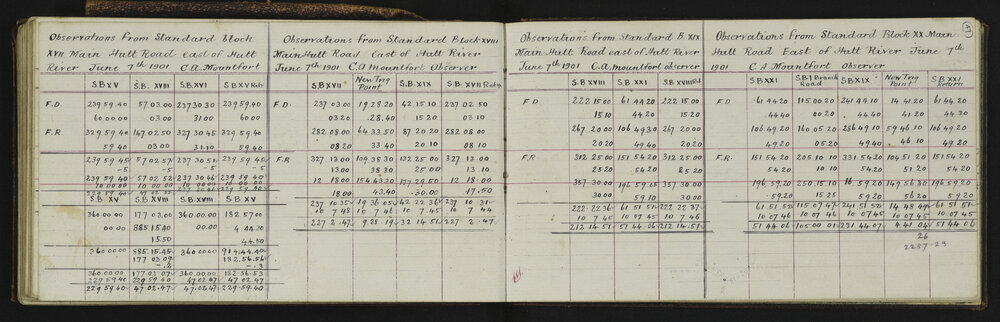 Observations from Standard Block
XVII Main Hutt Road east of Hutt
River June 7th 1901 C.A. Mountfort
S.B. XV S.B. XVIII S.B. XVII S.B. XV Retn
F.D 239 59.40 57 03.00 237 30 30 239 59.40
60 00.00 03.00 31.00 60.00
F.R 329 59.40 147 02.50 327 30 45 329 59.40
59.40 03.00 31.10 59.40
239 59 45 57 02 57 237 30 51 239 59 45
-5 -5 -5
239 59 40 57 02 52 237 30 46 239 59 40
10 00 00 10 00 00 10 00 00
S.B. XV S.B. XVIII S.B. XVII S.B. XV
360 00.00 177 03.00 360.00.00 182.57.00
00.00 885.15.40 00.00 4.44.30
15.50 44.50
360 00 00 885.15.45 360 00.00 914.44.40
177 03 09 182.56.56
-.2 -.3
360.00 00 177 03 07 360.00.00 182 56.53
229 59 40 229 59 40 47 02 47 47 02 47
229 59.40 47.02.47 47.02.47 229.59.40
Observations from Standard Block XVIII
Main Hutt Road East of Hutt River
June 7th 1901 C.A. Mountfort Observer
S.B. XVII New Trig Point S.B. XIX S.B. XVII Retn
F.D. 237 03.00 19.28.20 42 15.10 237 02 50
03.20 .28.40 15 20 03 10
282 08.00 64 33.50 87 20.20 282 08 00
08 20 33.40 20.10 08 10
F.R 327 13 00 109 38.30 132 25.00 327 13.00
13.00 38.30 25.00 13.10
12 18 00 154.43.20 12 18.00
18.00 43.40 .30.00 17.50
237 10 35 19 36 05 42 22 36 237 10 31
10 7 48 10 7 46 10 7 45 10 7 44
227 2.47 9.28 19 32 14 51 227 2.47
Observations from Standard B. XIX
Main Hutt Road east of Hutt River
June 7th 1901 C.A. Mountfort observer
S.B. XVIII S.B. XXI S.B. XVIII Rtn
F D 222 15 00 61 44 20 222 15 00
15 10 44.20 15 20
267 20 00 106 49 30 267 20 00
20 20 49 40 20 20
F.R. 312 25 00 151.54 20 312 25.00
25 20 .54 20 25 20
357.30 00 196 59 05 357 30 00
30 00 59 10 30.00
222 22 36 61 51 51 222 22 37
10 7 45 10 07 45 10 7 46
212 14.51 51 44.06 212 14.51
Observations from Standard Block XX Main
Hutt Road East of Hutt River June 7th
1901 C A Mountfort Observer
S.B. XXI S.B.1 Branch Road S.B. XIX New Trig Point S.B. XXI Return
F D 61 44 20 115.00 20 241 44 10 14 41 20 61 44.20
44 40 00 20 44.40 41 20 44.30
106 49 20 160 05 20 286 49 10 59 46 10 106 49 20
49.20 05 20 49.40 46 10 49.20
F.R. 151 54 20 205 10 10 331 54 20 104 51 20 151 54 20
54.20 10 10 54.20 51 20 54 20
196 59.20 250.15 10 16 59 20 149 56 30 196 59 20
59.20 15 25 59 20 56 20 59 20
61 51 52 115 07 47 241 51 52 14 48 49 61 51 51
10 07 46 10 07 46 10 07 45 10 07 45 10 07 45
51 44 06 105 00 01 231 44 07 4 41 04 51 44 06
26